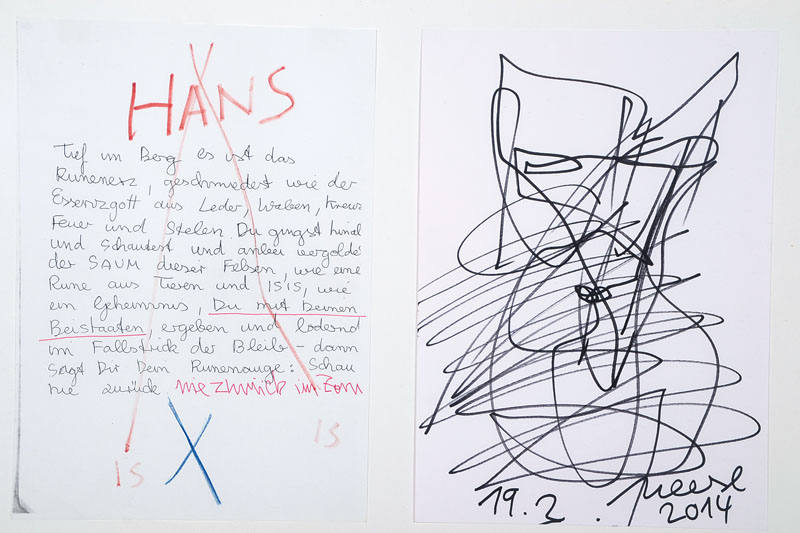 HANS
Tief im Berg es ist das
Runenerz, geschmiedet wie der
aus Leder, Waben, Kreuz
Feuer und Stelen. Du gingst hinab
und schautest und anbei vergoldet
der SAUM dieser Felsen, wie eine
Rune aus Tieren und ISIS, wie
ein Geheimnis, Du mit Deinen
Beistaaten, ergeben und lodernd
im Fallstrick der Bleib – dann
sagt Dir Dein Runenauge: Schau
nie zurück nie zurück im Zorn
IS X IS
19.2. Meese
2014